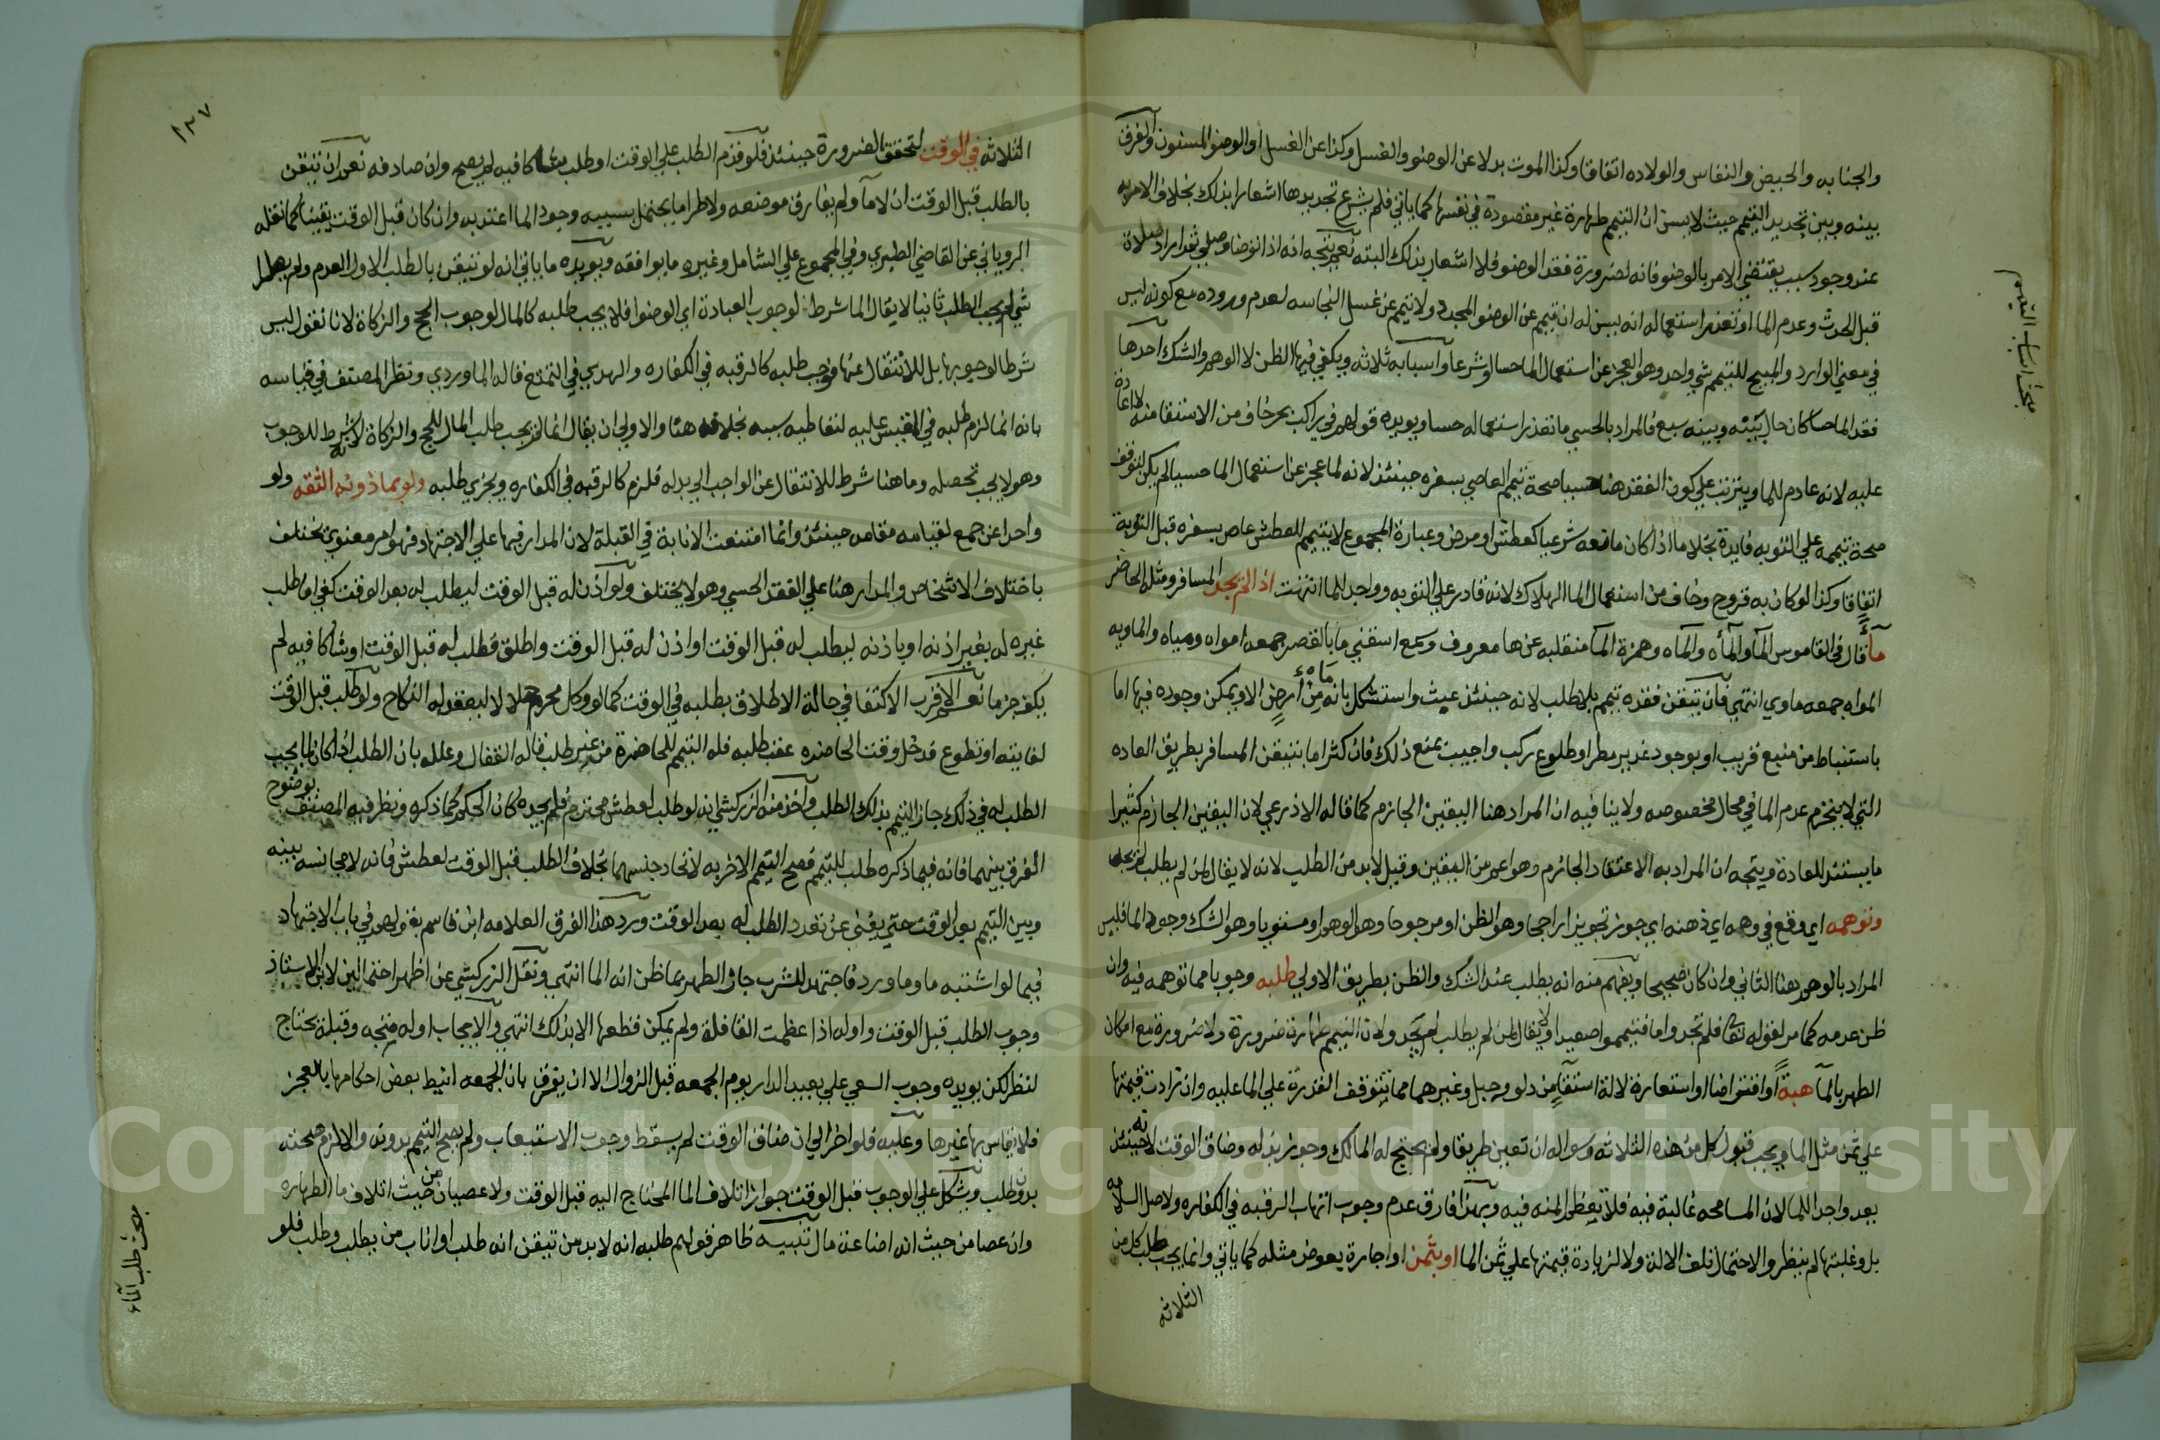 والجنابه والحيض والنفاس والولاده اتفاقا وكذا الموت بدلا عن الوضو والغسل وكذا عن الغسل او الوضو المسنون والفرق
بينه وبين تجديد التيمم حيث لا يسن ان التيمم طهارة غير مقصودة في نفسها كما ياتي فلم يشرع تجديدها اشعارا بذلك بخلاف الامر به
عند وجود سبب يقتضي الامر بالوضو فانه لضرورة فقد الوضو فلا اشعار بذلك البته نعم يتجه انه اذا توضا وصلي ثم اراد صلاة
قبل الحدث وعدم الما او تعذر استعماله انه يسن له ان يتيمم عن الوضو المجدد ولا تيمم عن غسل النجاسه لعدم وروده مع كونه ليس
في معني الوارد والمبيح للتيمم شي واحد وهو العجز عن استعمال الما حسا او شرعا واسبابه ثلاثه ويكفي فيها الظن لا الوهم والشك احدها
فقد الما حسا كان حال بينه وبينه سبع فالمراد بالحسي ما تعذر استعماله حسا ويويده قولهم في راكب بحر خاف من الاستقا منه لا اعادة
عليه لانه عادم للما ويترتب علي كون الفقد هنا حسيا صحة تيمم العاصي بسفره حينئذ لانه لما عجز عن استعمال الما حسيا لم يكن لتوقف
صحة تيممه علي التوبه فايدة بخلاف ما اذا كان مانعه شرعيا كعطش او مرض وعبارة المجموع لا يتيمم للعطش عاص بسفره قبل التوبة
اتفاقا وكذا لو كان به قروح وخاف من استعمال الما الهلاك لانه قادر علي التوبه وواجد للما انتهت اذا لم يجد المسافر ومثله الحاضر
مآءً قال في القاموس الما والماه والماة وهمزة الما منقلبه عن ها معروف وسمع اسقني ما بالقصر جمعه امواه ومياه والماويه
المواه جمعه ماوي انتهي فان تيقن فقده تيمم بلا طلب لانه حينئذ عبث واستشكل بانه ما من ارض الا ويمكن وجوده فيها اما
باستنباط من منبع قريب او بوجود غدير مطر او طلوع ركب واجيب بمنع ذلك فان كثرا ما يتيقن المسافر بطريق العاده
التي لا ينخرم عدم الما في محال مخصوصه ولا ينافيه ان المراد هنا اليقين الجازم كما قاله الاذرعي لان اليقين الجازم كثيرا
ما يستند للعادة ويتجه ان المراد به الاعتقاد الجازم وهو اعم من اليقين وقيل لابد من الطلب لانه لا يقال لمن لم يطلب لم يجد
وتوهمه اي وقع في وهمه اي ذهنه اي جوز تجويزا راجحا وهو الظن او مرجوحا وهو الوهم او مستويا وهو الشك وجود الما فليس
المراد بالوهم هنا الثاني وان كان صحيحا ويفهم منه انه يطلب عند الشك والظن بطريق الاولي طلبه وجوبا مما توهمه فيه وان
ظن عدمه كما مر لقوله تعالى فلم تجدوا ما فتيمموا صعيدا ولا يقال لمن لم يطلب لم يجد ولان التيمم طهارة ضرورة ولا ضرورة مع امكان
الطهر بالما هبةً او اقتراضا او استعارة لالة استقا من دلو وحبل وغيرهما مما تتوقف القدرة علي الما عليه وان زادت قيمتها
علي ثمن مثل الما ويجب قبول كل من هذه الثلاثه وسواله ان تعين طريقا ولم يحتج له المالك وجوز بذله وضاق الوقت لانه حينئذ
يعد واجدا للما لان المسامحه غالبة فيه فلا تعظم المنه فيه وبهذا فارق عدم وجوب اتهاب الرقبه في الكفاره ولا صل السلامه
بل وغلبتها لم ينظروا لاحتمال تلف الالة ولا لزيادة قيمتها علي ثمن الما او بثمن او اجارة بعوض مثله كما ياتي وانما يجب طلب كل من
الثلاثه
مبحث اسباب التيمم
١٢٧
الثلاثه في الوقت لتحقق الضرورة حينئذ فلو قدم الطلب علي الوقت او طلب شاكا فيه لم يصح وان صادفه نعم ان تيقن
بالطلب قبل الوقت ان لا ما ولم يفارق موضعه ولا طرا ما يحتمل بسببه وجود الما اعتد به وان كان قبل الوقت يقينا كما نقله
الروياني عن القاضي الطبري وفي المجموع علي الشامل وغيره ما يوافقه ويويده ما ياتي انه لو تيقن بالطلب الاول العدم ولم يطرا
شي لم يجب الطلب ثانيا لا يقال الما شرط لوجوب العبادة اي الوضوا فلا يجب طلبه كالمال لوجوب الحج والزكاة لانا نقول ليس
شرطا لوجوبها بل للانتقال عنها فوجب طلبه كالرقبه في الكفاره والهدي في التمتع قاله الماوردي ونظر المصنف في قياسه
بانه انما لزم طلبه في المقيس عليه لتعاطيه سببه بخلافه هنا والاولي ان يقال انما لم يجب طلب المال للحج والزكاة لانه شرط للوجوب
وهو لا يجب تحصيله وما هنا شرط للانتقال عن الواجب الي بدله فلزم كالرقبه في الكفاره ويجزي طلبه ولو بماذونه الثقه ولو
واحدا عن جمع لقيامه مقامه حينئذ وانما امتنعت الانابة في القبلة لان المدار فيها علي الاجتهاد فهو امر معنوي يختلف
باختلاف الاشخاص والمدار هنا علي الفقد الحسي وهو لا يختلف ولو اذن له قبل الوقت ليطلب له بعد الوقت كفي اما طلب
غيره له بغير اذنه او باذنه ليطلب له قبل الوقت او اذن له قبل الوقت واطلق فطلب له قبل الوقت او شاكا فيه لم
يكف جزما نعم الاقرب الاكتفا في حالة الاطلاق بطلبه في الوقت كما لو وكل محرم حلالا ليعقد له النكاح ولو طلب قبل الوقت
لفايته او تطوع فدخل وقت الحاضره عقب طلبه فله التيمم للحاضرة من غير طلب قاله القفال وعلله بان الطلب اذا كان لما يجب
الطلب له في ذلك جاز التيمم بذلك الطلب واخذ منه الزركشي انه لو طلب لعطش محترم فلم يجده كان الحكم كما ذكر ونظر فيه المصنف بوضوح
الفرق بينهما فانه فيما ذكره طلب للتيمم فصح التيمم الاخر به لاتحاد جنسهما بخلاف الطلب قبل الوقت لعطش فانه لا مجانسه بينه
وبين التيمم بعد الوقت حتي يغني عن تعدد الطلب له بعد الوقت ورد هذا الفرق العلامه ابن قاسم بقولهم في باب الاجتهاد
فيما لو اشتبه ما وما ورد فاجتهد للشرب جاز الطهر بما ظن انه الما انتهي ونقل الزركشي عن اظهر احتمالين لابن الاستاذ
وجوب الطلب قبل الوقت واوله اذا عظمت القافلة ولم يمكن قطعها الا بذلك انتهي والايجاب اوله متجه وقبله يحتاج
لنظر لكن يويده وجوب السعي علي بعيد الدار يوم الجمعه قبل الزوال الا ان يفرق بان الجمعه انيط بعض احكامها بالفجر
فلا يقاس بها غيرها وعليه فلو اخر الي ان ضاق الوقت لم يسقط وجوب الاستيعاب ولم يصح التيمم بدونه والا لزم صحته
بدون طلب ويشكل علي الوجوب قبل الوقت جواز اتلاف الما المحتاج اليه قبل الوقت ولا عصيان من حيث اتلاف ما الطهاره
وان عصا من حيث انه اضاعة مال تنبيه ظاهر قولهم طلبه انه لا بد من تيقن انه طلب او اناب من يطلب وطلب فلو
مبحث طلب الماء
Copyright © King Saud University